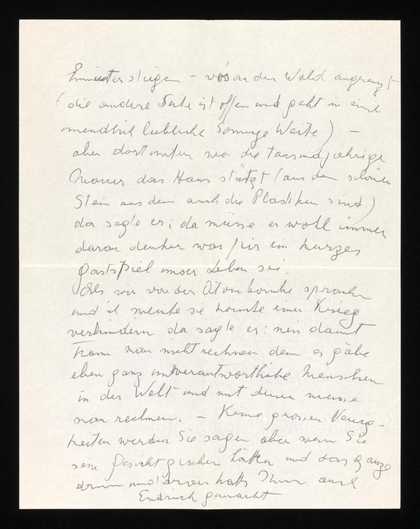 hinuntersteigen - wo an den Wald angrenzt
(die andere Seite ist offen und geht in eine
unendlich liebliche sonnige Weite) -
aber dort unten wo die tausendjährige
Mauer das Haus stützt (aus dem schönen
Stein aus dem auch die Plastiken sind)
da sagte er: da müsse er wohl immer
daran denken was für ein kurzes
Gastspiel unser Leben sei.
Als wir von der Atombombe sprachen
und ich meinte sie könnte einen Krieg
verhindern da sagte er: nein damit
kann man nicht rechnen denn es gäbe
eben ganz unverantwortliche Menschen
in der Welt und mit denen müsse
man rechnen. - Keine grossen Neuig-
keiten werden Sie sagen aber wenn Sie
sein Gesicht gesehen hätten und das ganze
drum und hätts Ihnen auch
Eindruck gemacht